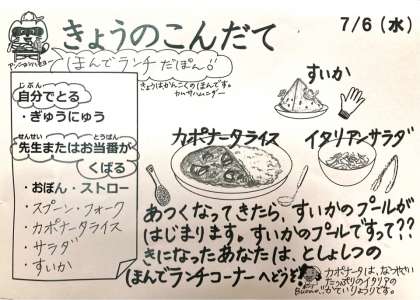 きょうのこんだて
7/6（水）
ほんでランチだぽん！
きょうはかんこくのほんです。
すいか
じぶん
自分でとる
・ぎゅうにゅう
せんせい とうばん
先生またはお当番が
くばる
・おぼん・ストロー
・スプーン・フォーク
・カポナータライス
・サラダ
・すいか
カポナータライス
イタリアンサラダ
あつくなってきたら、すいかのプールが
はじまります。すいかのプールですって??
きになったあなたは、としょしつの
ほんでランチコーナーへどうぞ
カポナータは、なつやさい
たっぷりのイタリアの
かていりょうりです。